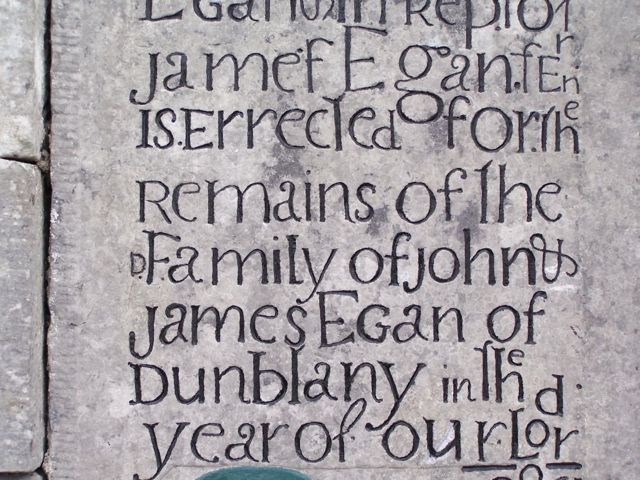 Egan & in Repr of
james Egan.sEnr
IS.Errected for.the
Remains of the
Family of john &
james Egan of
Dunblany in the
year of our.Lord